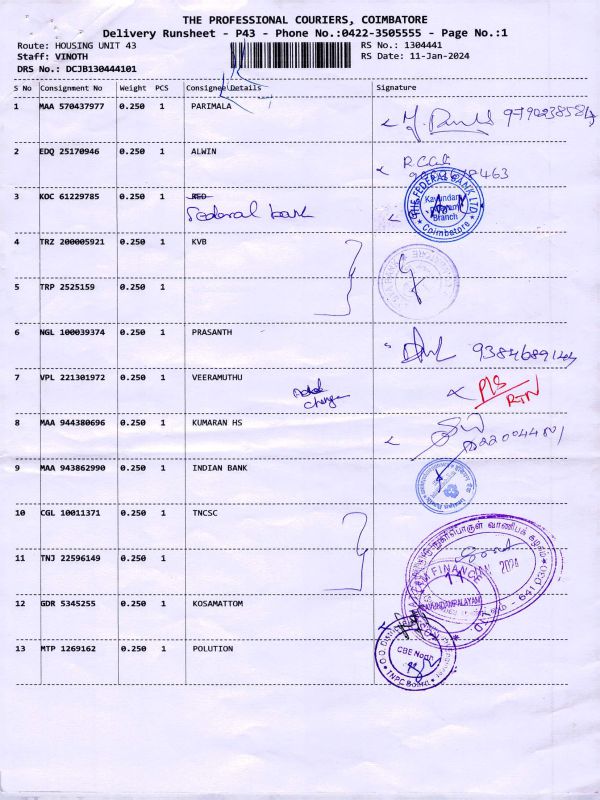 THE PROFESSIONAL COURIERS, COIMBATORE
Delivery Runsheet - P43 - Phone No.:0422-3505555 - Page No.:1
Route: HOUSING UNIT 43
Staff: VINOTH
DRS No.: DCJB130444101
RS No.: 1304441
RS Date: 11-Jan-2024
S No Consignment No Weight PCS Consignee Details Signature
1 MAA 570437977 0.250 1 PARIMALA
2 EDQ 25170946 0.250 1 ALWIN
3 KOC 61229785 0.250 1 RED
Federal bank
THE FEDERAL BANK LTD
Branch
Coimbatore
4 TRZ 200005921 0.250 1 KVB
5 TRP 2525159 0.250 1
6 NGL 100039374 0.250 1 PRASANTH
7 VPL 221301972 0.250 1 VEERAMUTHU
change
RTN
8 MAA 944380696 0.250 1 KUMARAN HS
9 MAA 943862990 0.250 1 INDIAN BANK
10 CGL 10011371 0.250 1 TNCSC
11 TNJ 22596149 0.250 1
நுகர்பொருள் வாணிபக் கழகம்
2024
12 GDR 5345255 0.250 1 KOSAMATTOM
13 MTP 1269162 0.250 1 POLUTION
CBE North
TNPC Board